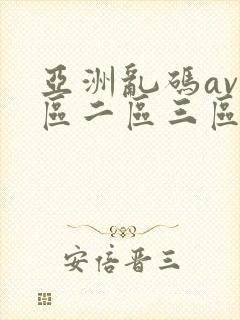 亞洲亂碼av
區二區三區
安倍晋三